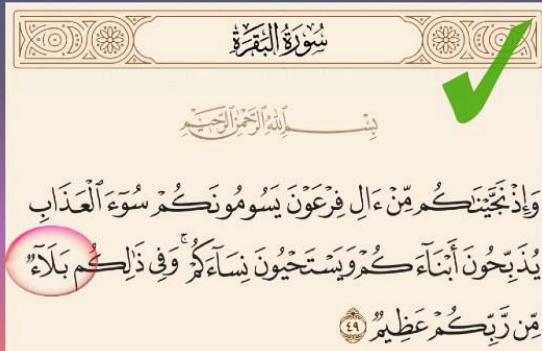 سُورَةُ الْبَقَرَةِ
بِسْمِ اللَّهِ الرَّحْمَٰنِ الرَّحِيمِ
وَإِذْ نَجَّيْنَٰكُم مِّنْ ءَالِ فِرْعَوْنَ يَسُومُونَكُمْ سُوٓءَ ٱلْعَذَابِ
يُذَبِّحُونَ أَبْنَآءَكُمْ وَيَسْتَحْيُونَ نِسَآءَكُمْ ۚ وَفِى ذَٰلِكُم بَلَآءٌ
مِّن رَّبِّكُمْ عَظِيمٌ ٤٩